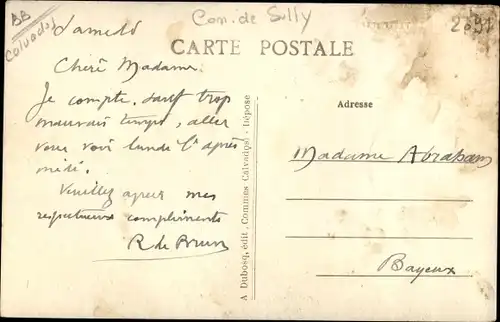 BB
Calvados
Samedi
Com. de Sully
CARTE POSTALE
Chère Madame.
Je compte, sauf trop
mauvais temps, aller
vous voir lundi l'après
midi.
Veuillez agréer mes
respectueux compliments
R de Brun
A Dubosq, édit, Commes (Calvados) - Déposé
Adresse
Madame Abraham
Bayeux